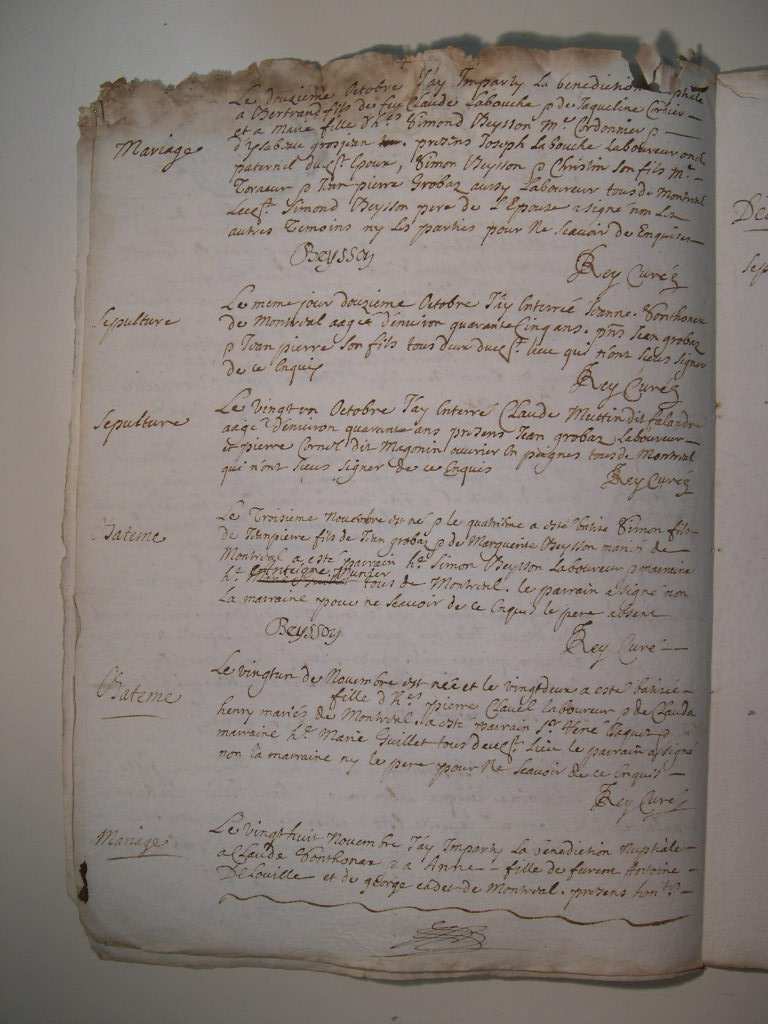 Mariage
Le douzieme Octobre J'ay Imparty La benediction
a Bertrand fils de feu Claude Labouche p de Jaqueline
et a Marie fille d'h.es Simond Beysson M.e Cordonnier p
d'ysabeau grosjean presens Joseph Labouche Laboureur oncle
paternel du Epoux, Simon Beysson p Christin son fils M.e
Torneur p Jean pierre Grobaz aussy Laboureur tous de Montreal
Simond Beysson pere de L'Epouse a signé non Les
autres Temoins ny Les parties pour Ne Scavoir de Enquises
Beysson
Rey Curéz
Sepulture
Le meme jour douzieme Octobre J'ay Enterrée Jeanne Bonthoner
de Montreal aagée d'environ quarante Cinq ans. Jean grobaz
p Jean pierre son fils tous deux lieu qui n'ont sceus signer
de ce Enquis
Rey Curéz
Sepulture
Le Vingt un Octobre J'ay Enterré Claude dit
aagé d'environ quarante ans presens Jean grobaz Laboureur
et pierre Cornel dit Magonin ouvrier En peignes tous de Montreal
qui n'ont sceus signer de ce Enquis
Rey Curéz
Bateme
Le Troisieme Novembre est né p le quatrieme a esté batisé Simon fils
de Jeanpierre fils de Jean grobaz p de Marguerite Beysson mariés de
Montreal a esté parrain h.e Simon Beysson Laboureur p marraine
h.e Anteigne tous de Montreal. le parrain a signé non
La marraine pour ne scavoir de ce Enquis le pere absent
Beysson
Rey Curé
Bateme
Le vingtun de Novembre est née et le vingtdeux a esté batisée
fille d'h.es pierre Clavel laboureur p de Clauda
henry mariés de Montreal. a esté parrain S.r René p
marraine h.e Marie Guillet tous Lieu le parrain a signé
non la marraine ny le pere pour Ne Scavoir de ce Enquis
Rey Curé
Mariage
Le vingthuit Novembre J'ay Imparty La benediction Nuptiale
a Claude Bonthoner p a Anne fille de furent Antoine
DeLouille et de george cadet de Montreal. presens